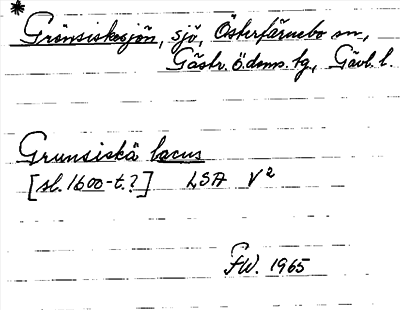 * Grönsiskesjön, sjö, Österfärnebo sn,
Gästr. ö. doms. tg, Gävl. l.
Grunsiskä lacus
[sl. 1600-t.?] LSA V²
FW. 1965